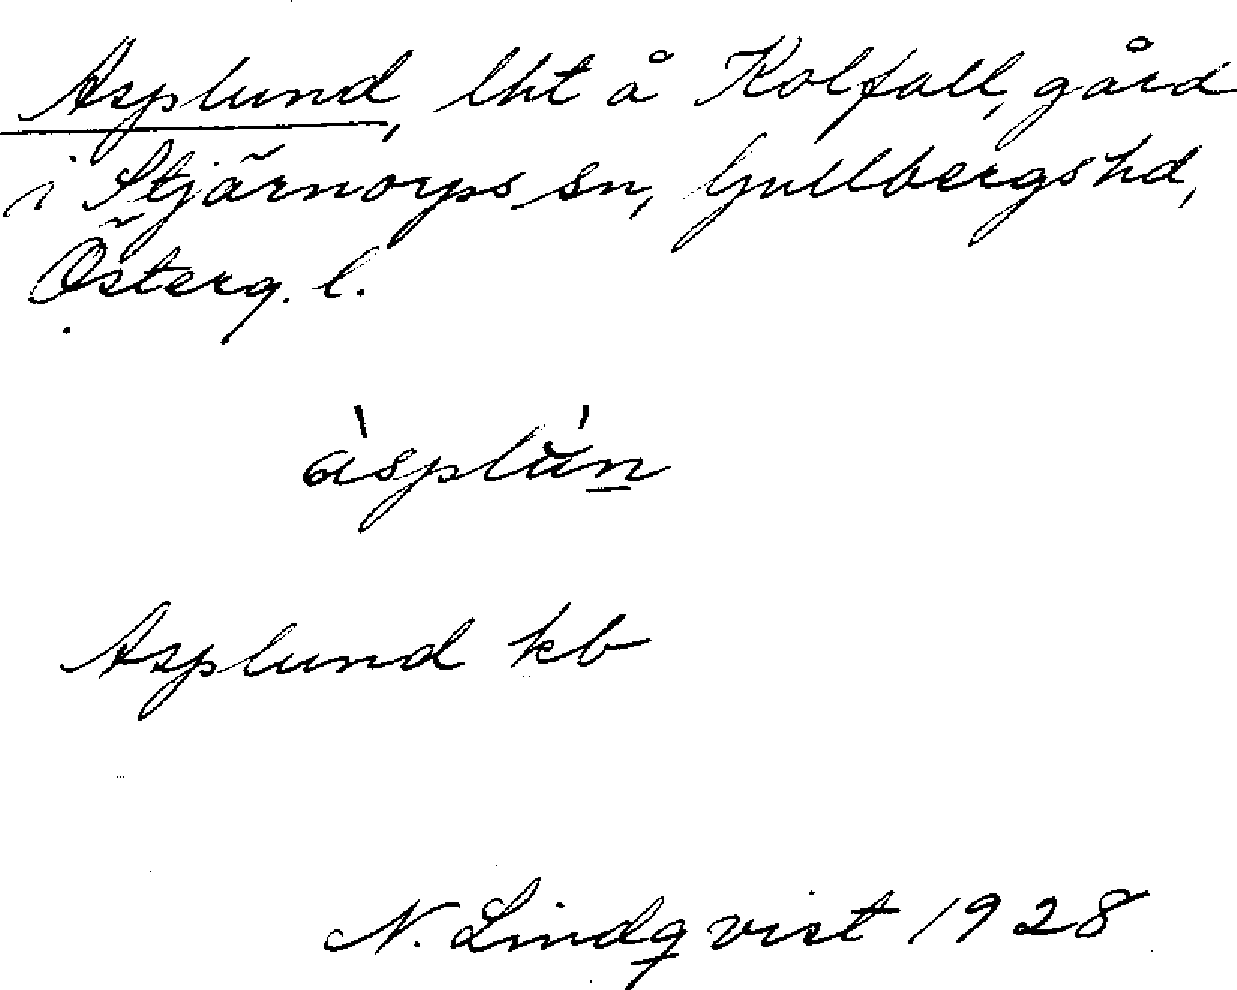 Asplund, lht å Kolfall, gård
i Stjärnorps sn, Gullbergs hd,
Österg. l.
àsplún
Asplund kb
N. Lindqvist 1928